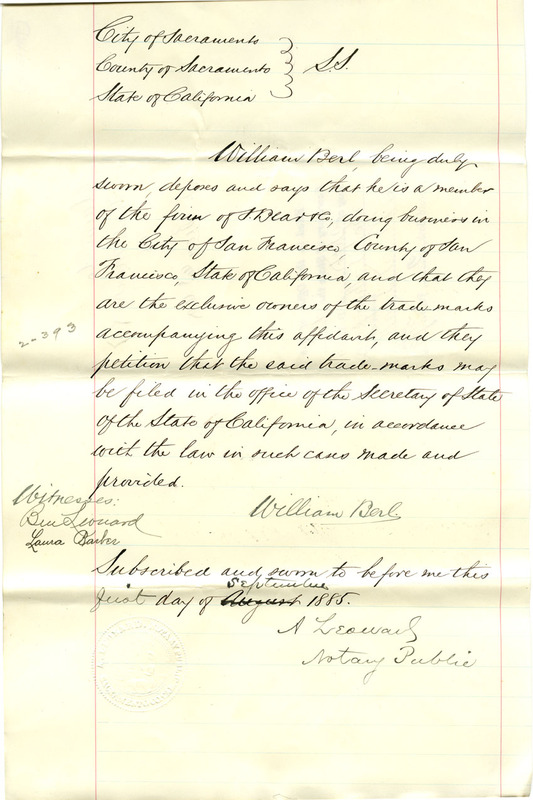 City of Sacramento
County of Sacramento } S.S.
State of California
William Berl, being duly
sworn, deposes and says that he is a member
of the firm of & Co, doing business in
the City of San Francisco, County of San
Francisco, State of California, and that they
are the exclusive owners of the trade-marks
accompanying this affidavit, and they
petition that the said trade-marks may
be filed in the office of the Secretary of State
of the State of California, in accordance
with the law in such cases made and
provided.
2-393
William Berl
Witnesses:
Ben Leonard
Laura Barber
Subscribed and sworn to before me this
first day of August September 1885.
A Leonard
Notary Public